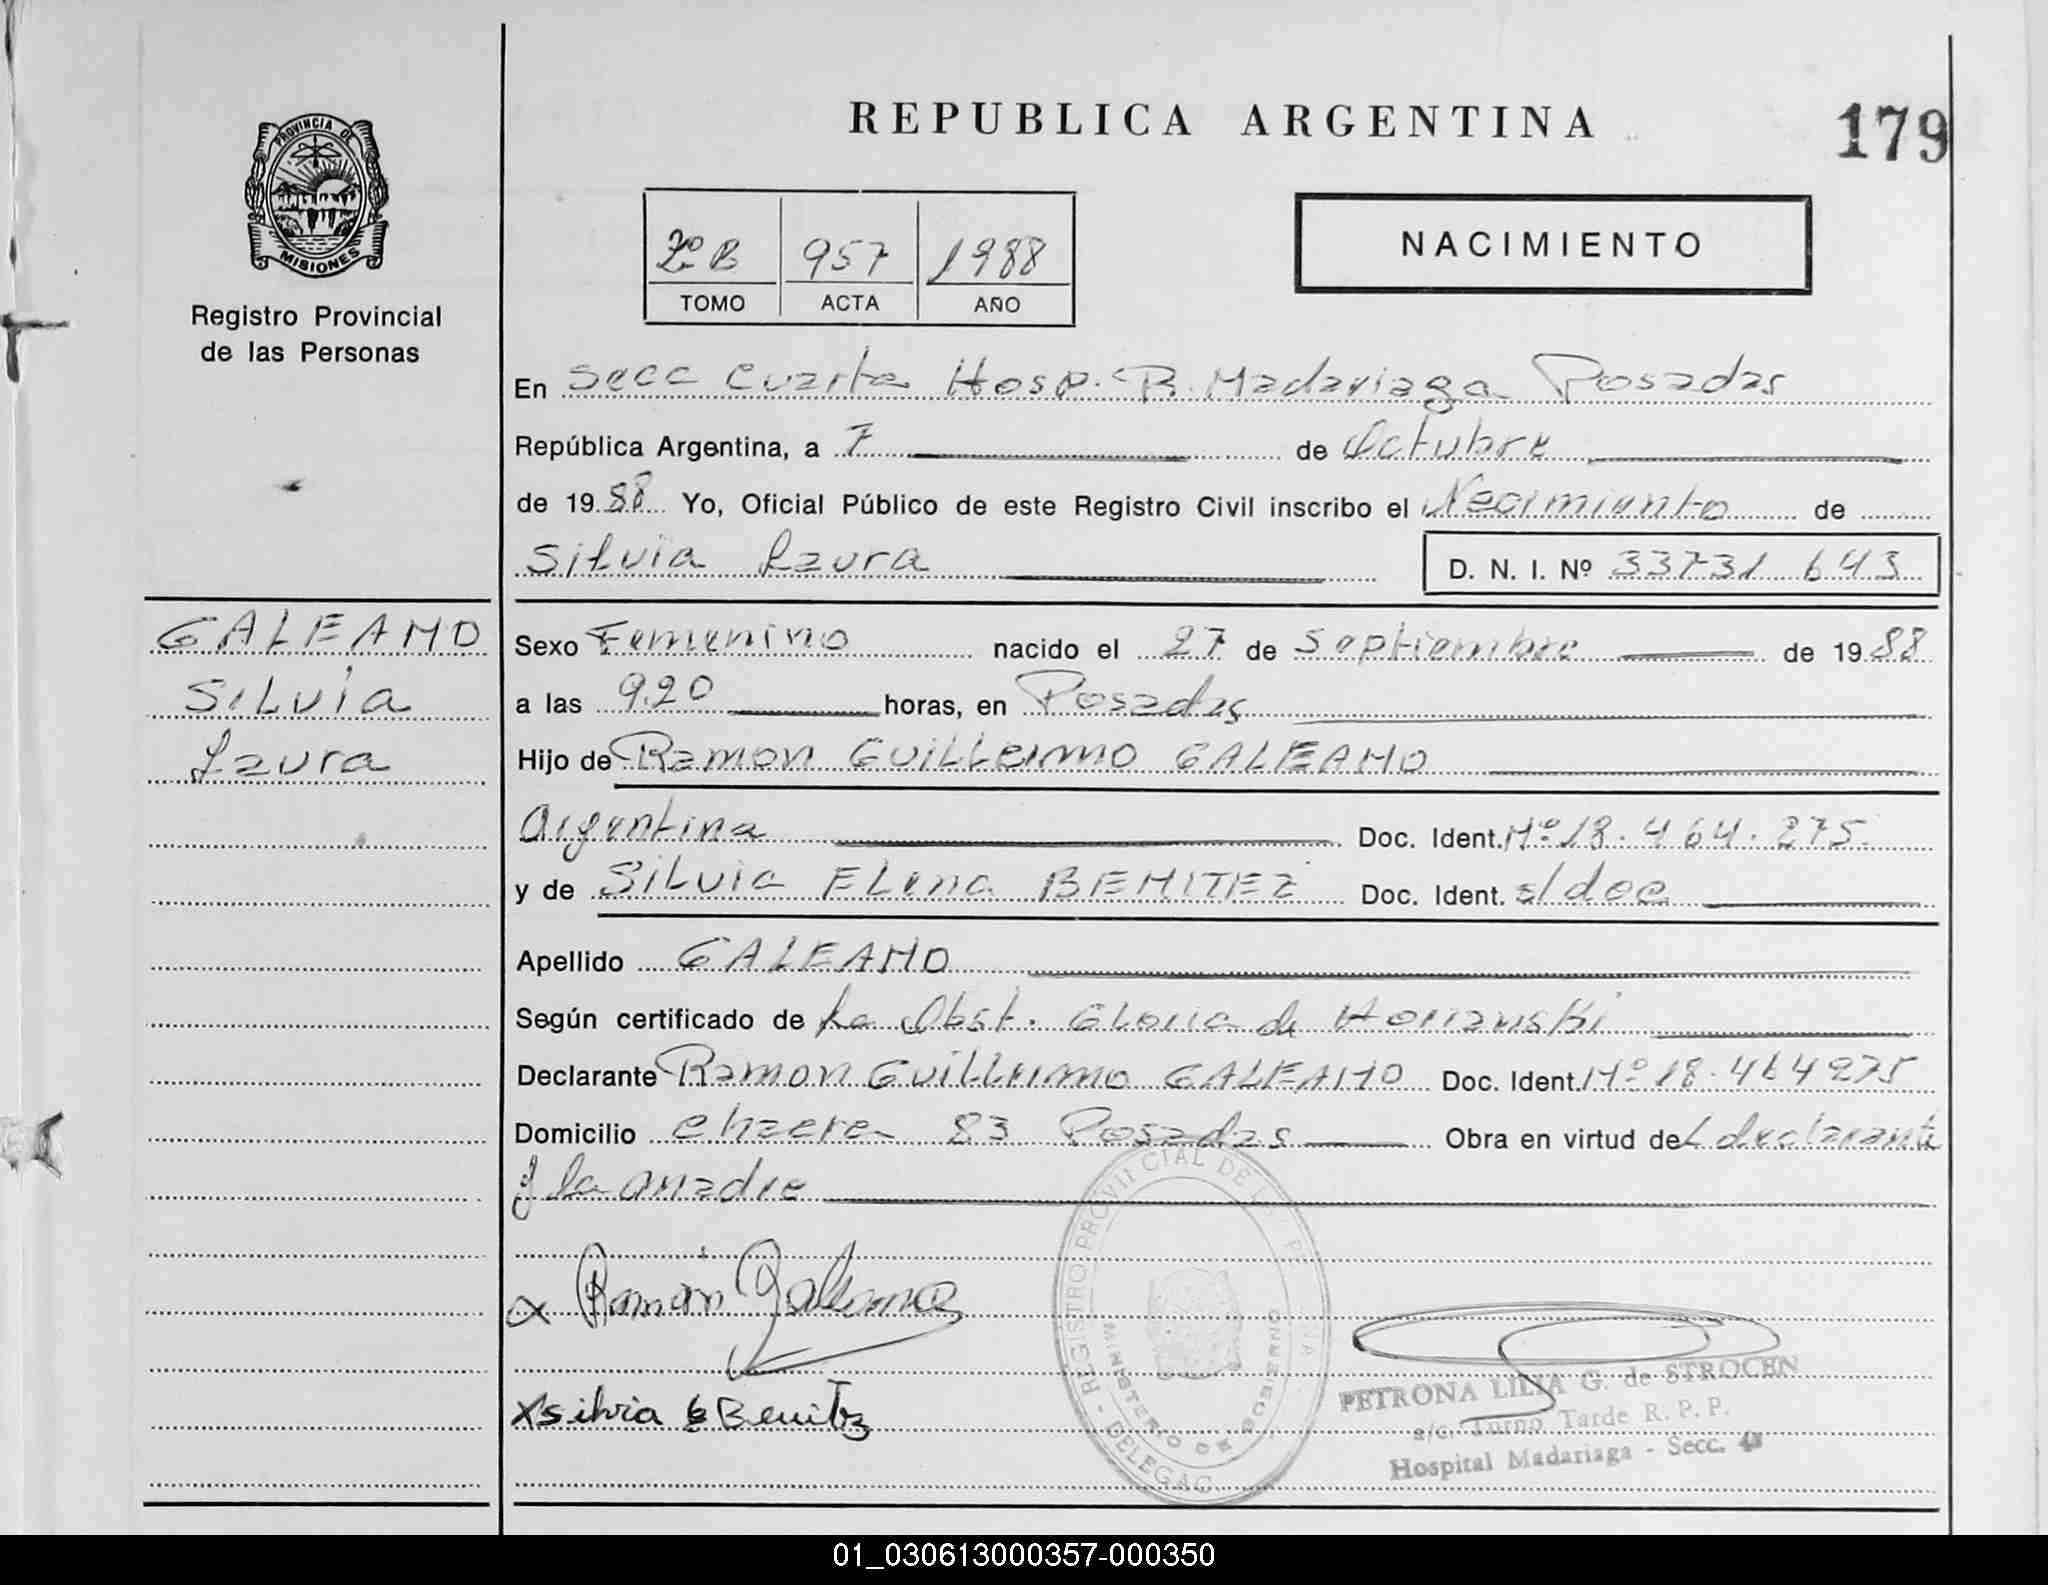 REPUBLICA ARGENTINA
179
PROVINCIA DE
MISIONES
Registro Provincial
de las Personas
2º B 957 1988
TOMO ACTA AÑO
NACIMIENTO
En Secc Cuarta Hosp. R. Madariaga Posadas
República Argentina, a 7 de Octubre
de 1988 Yo, Oficial Público de este Registro Civil inscribo el Nacimiento de
Silvia Laura D. N. I. Nº 33731 643
GALEANO
Silvia
Laura
Sexo Femenino nacido el 27 de Septiembre de 1988
a las 9.20 horas, en Posadas
Hijo de Ramon Guillermo GALEANO
Argentina Doc. Ident. Nº 18.464.275.
y de Silvia Elena BENITEZ Doc. Ident. s/doc
Apellido GALEANO
Según certificado de La Obst. Gloria de
Declarante Ramon Guillermo GALEANO Doc. Ident. Nº 18.464275
Domicilio Chacra 83 Posadas Obra en virtud del declarante
y la madre
x Ramón Galeano
x silvia E Benitez
REGISTRO PROVINCIAL DE LAS PERSONAS
MINISTERIO DE GOBIERNO
DELEGAC
PETRONA LILIA G. de STROCEN
a/c. Turno Tarde R. P. P.
Hospital Madariaga - Secc. 4ª
01_030613000357-000350